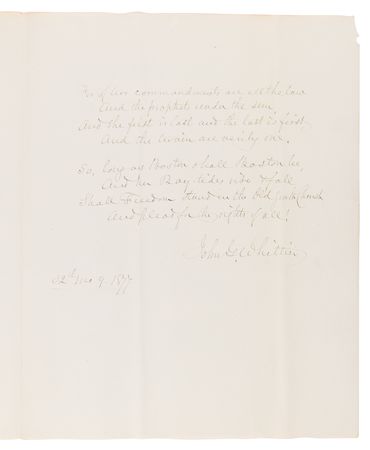 For of two commandments are all the law
And the prophets under the sun,
And the first is last and the last is first,
And the twain are verily one.
So, long as Boston shall Boston be,
And her Bay tides rise & fall
Shall Freedom stand in the Old South Church
And plead for the rights of all!
John G. Whittier
12th mo 9. 1877